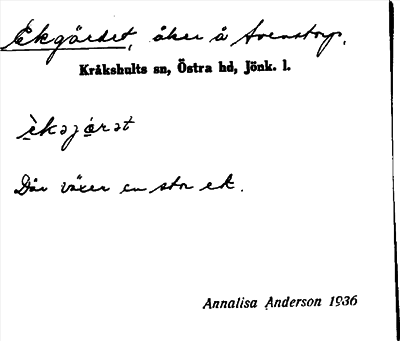 Ekgärdet, åker å Svenstorp.
Kråkshults sn, Östra hd, Jönk. l.
èkəjǫrət
Där växer en stor ek.
Annalisa Anderson 1936